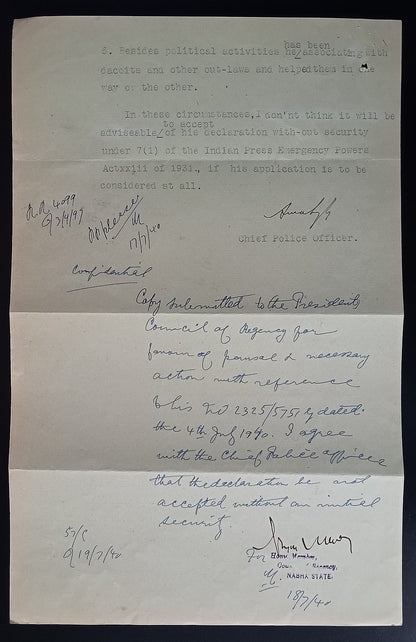 has been
6. Besides political activities he/associating with
dacoits and other out-laws and helpedthem in the
way or the other.
In these circumstances,I don'nt think it will be
to accept
adviseable/of his declaration with-out security
under 7(1) of the Indian Press Emergency Powers
Actxxiii of 1931., if his application is to be
considered at all.
Chief Police Officer.
17/7/40
Confidential
Copy submitted to the President,
Council of Regency for
favour of perusal & necessary
action with reference
to his No 2325/575/ dated
the 4th July 1940. I agree
with the Chief Police officer
that the declaration be not
accepted without an initial
security.
19/7/40
For Home Member,
Regency,
NABHA STATE.
18/7/40